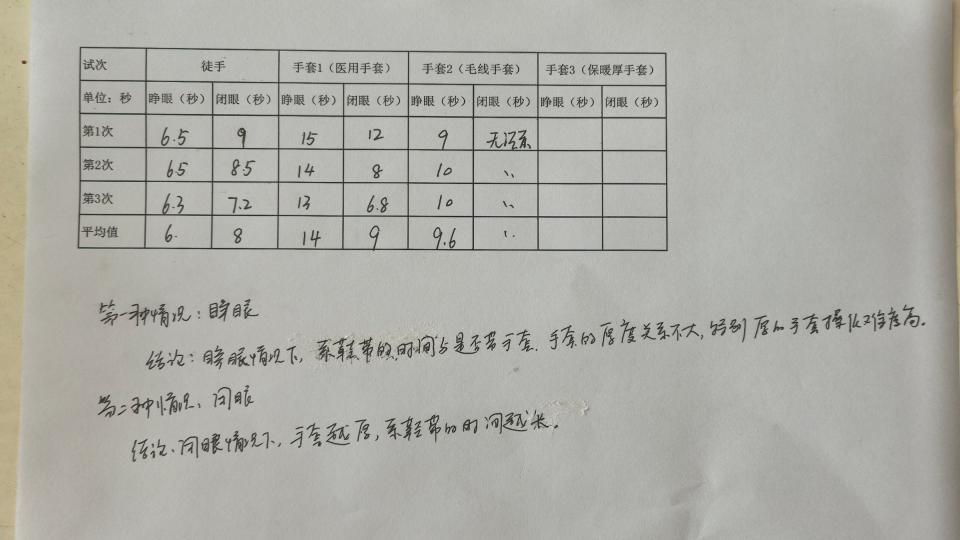 试次 徒手 手套1（医用手套） 手套2（毛线手套） 手套3（保暖厚手套）
单位：秒 睁眼（秒） 闭眼（秒） 睁眼（秒） 闭眼（秒） 睁眼（秒） 闭眼（秒） 睁眼（秒） 闭眼（秒）
第1次 6.5 9 15 12 9 无法系
第2次 6.5 8.5 14 8 10 〃
第3次 6.3 7.2 13 6.8 10 〃
平均值 6. 8 14 9 9.6 〃
第一种情况：睁眼
结论：睁眼情况下，系鞋带的时间与是否带手套、手套的厚度关系不大，特别厚的手套操作难度高。
第二种情况、闭眼
结论、闭眼情况下，手套越厚，系鞋带的时间越长。